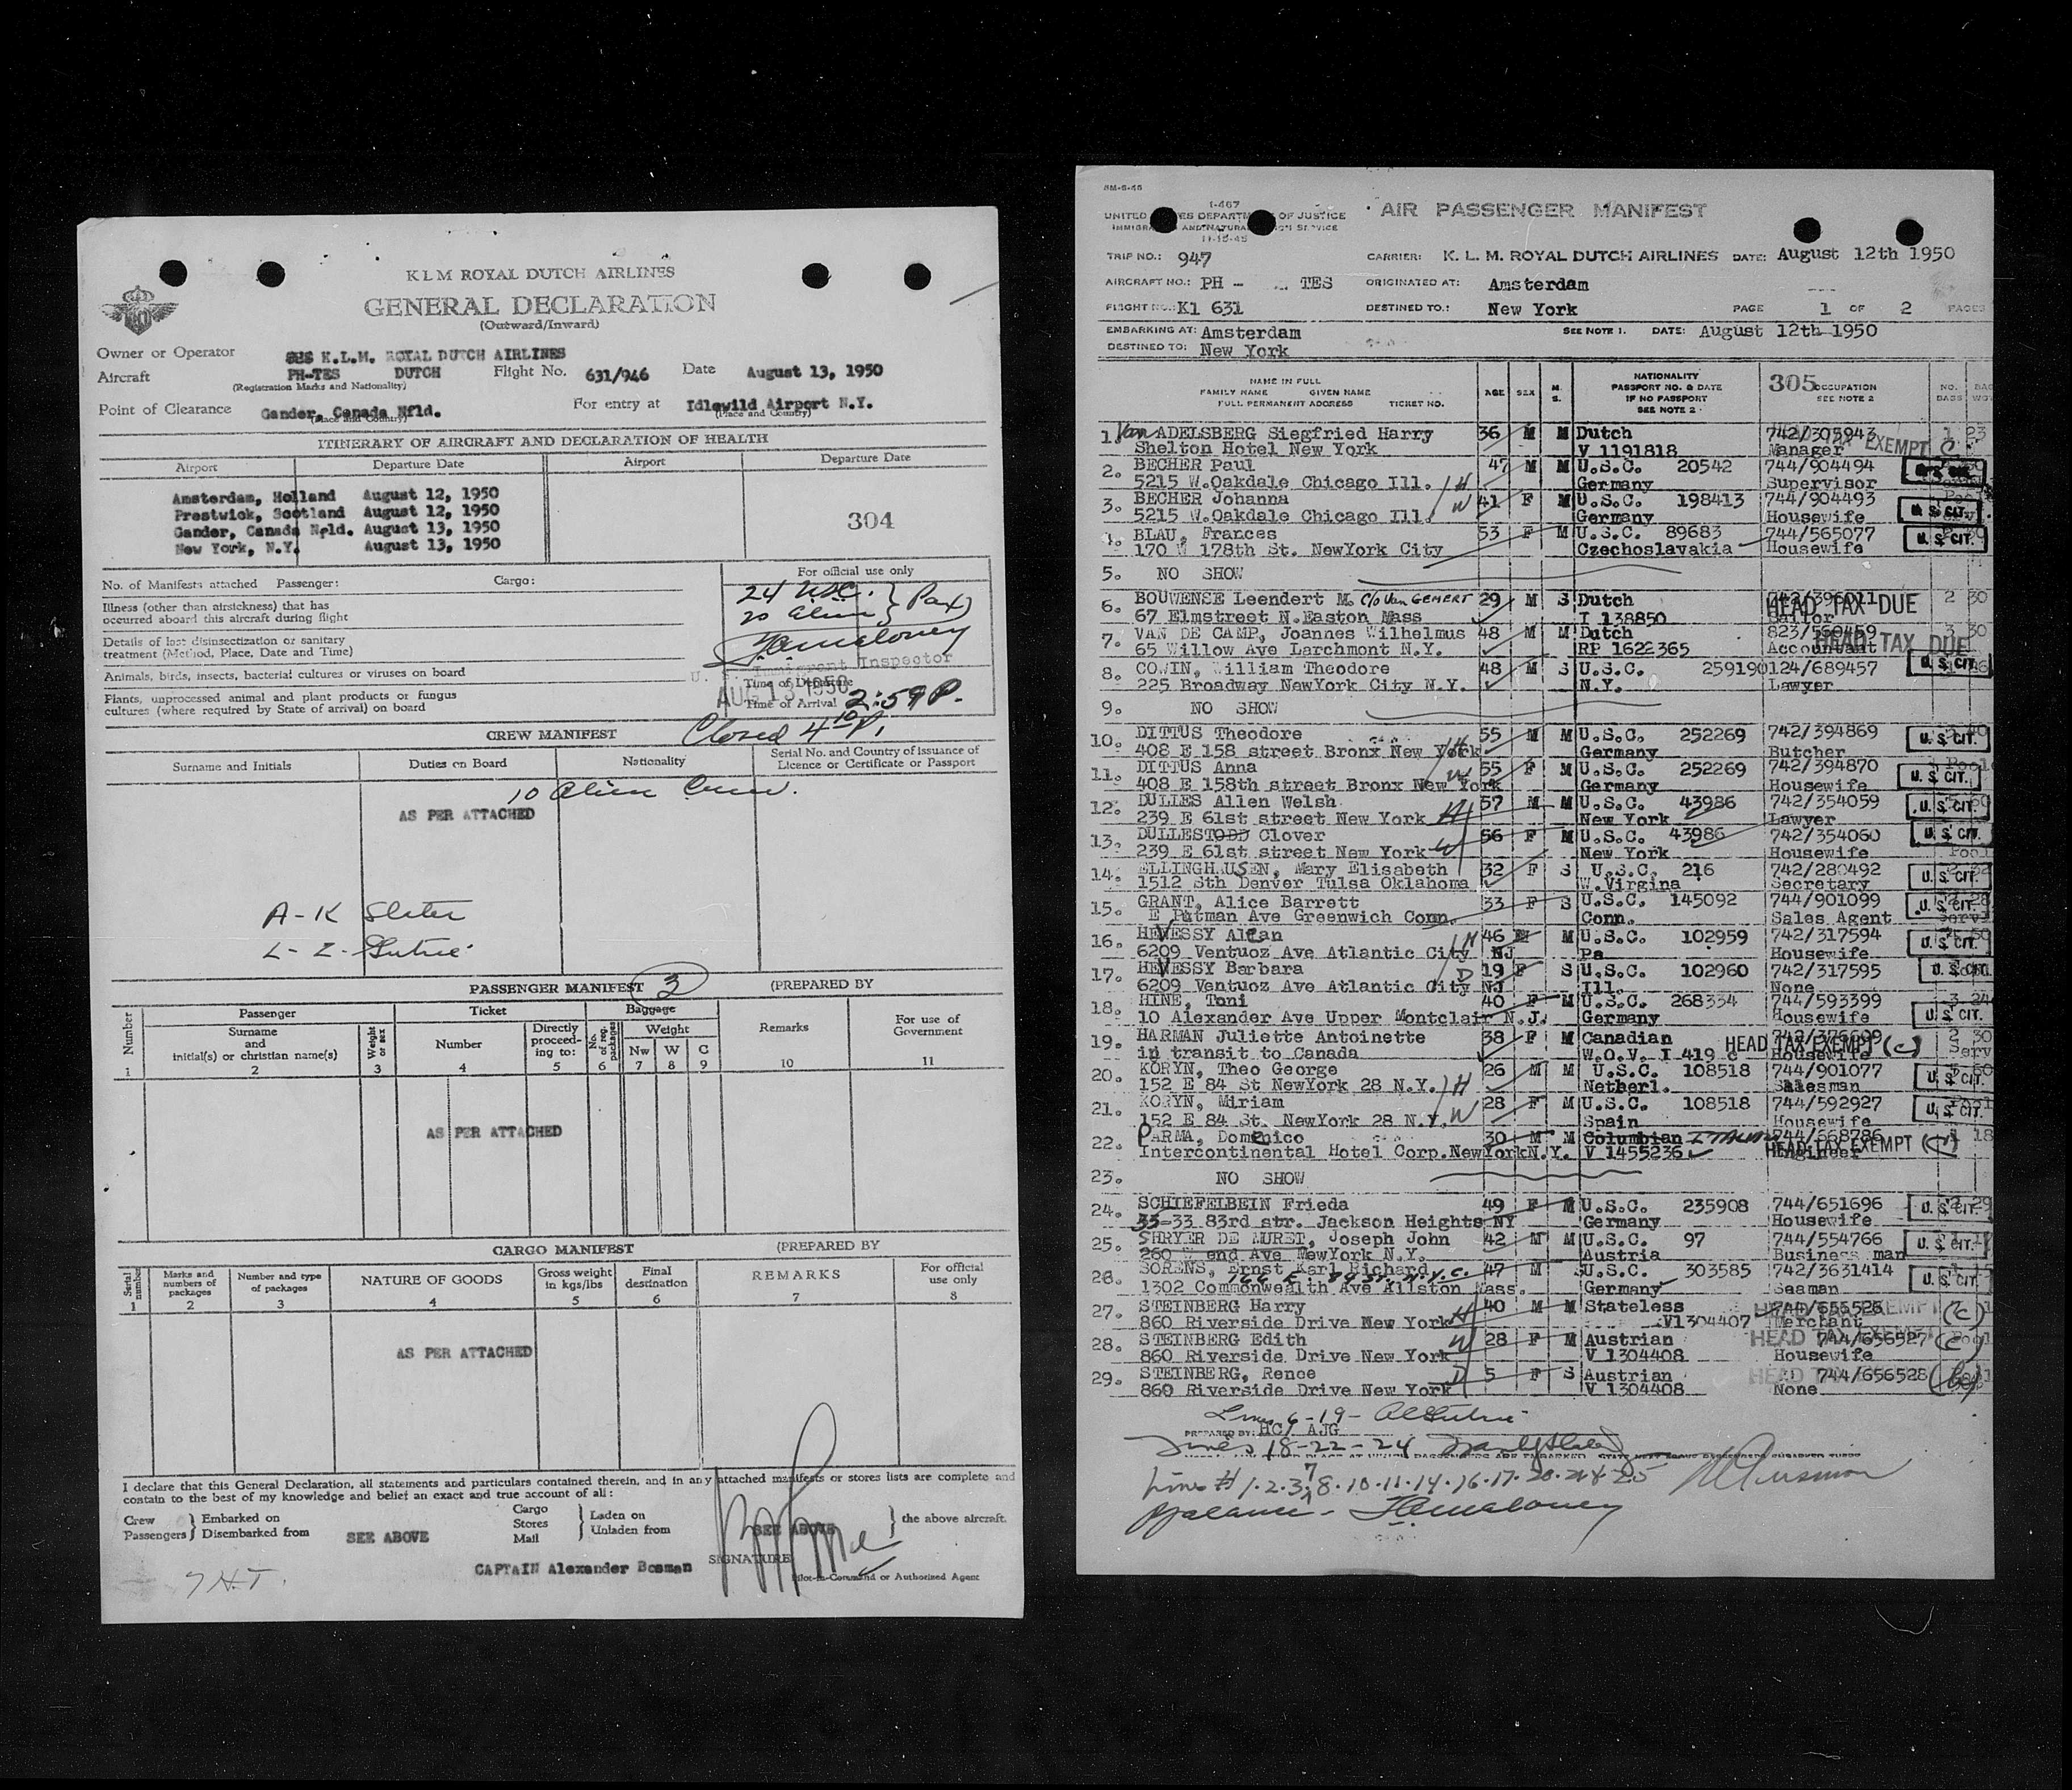 KLM ROYAL DUTCH AIRLINES
GENERAL DECLARATION
(Outward/Inward)
Owner or Operator K.L.M. ROYAL DUTCH AIRLINES
Aircraft PH-TES DUTCH Flight No. 631/946 Date August 13, 1950
(Registration Marks and Nationality)
Point of Clearance Gander, Canada Nfld. For entry at Idlewild Airport N.Y.
(Place and Country) (Place and Country)
ITINERARY OF AIRCRAFT AND DECLARATION OF HEALTH
Airport Departure Date Airport Departure Date
Amsterdam, Holland August 12, 1950
Prestwick, Scotland August 12, 1950
Gander, Canada Nfld. August 13, 1950
New York, N.Y. August 13, 1950
304
No. of Manifests attached Passenger: Cargo:
For official use only
24 USC. } (Pax)
20 alien }
Illness (other than airsickness) that has
occurred aboard this aircraft during flight
Details of last disinsectization or sanitary
treatment (Method, Place, Date and Time)
Animals, birds, insects, bacterial cultures or viruses on board
Plants, unprocessed animal and plant products or fungus
cultures (where required by State of arrival) on board
U. S. Immigrant Inspector
AUG 13 1950
Time of Departure
Time of Arrival 2:59 P.
Closed 4 10 P.
CREW MANIFEST
Surname and Initials Duties on Board Nationality Serial No. and Country of issuance of
Licence or Certificate or Passport
10 Alien Crew.
AS PER ATTACHED
PASSENGER MANIFEST 3 (PREPARED BY
Number Passenger Ticket Baggage Remarks For use of
Government
Surname
and
initial(s) or christian name(s)
Weight or sex
Number
Directly
proceed-
ing to:
No. of reg. packages
Weight
Nw W C
1 2 3 4 5 6 7 8 9 10 11
AS PER ATTACHED
CARGO MANIFEST (PREPARED BY
Serial number
Marks and
numbers of
packages
Number and type
of packages
NATURE OF GOODS
Gross weight
in kgs/lbs
Final
destination
REMARKS
For official
use only
1 2 3 4 5 6 7 8
AS PER ATTACHED
I declare that this General Declaration, all statements and particulars contained therein, and in any attached manifests or stores lists are complete and
contain to the best of my knowledge and belief an exact and true account of all:
Crew } Embarked on
Passengers } Disembarked from
SEE ABOVE
Cargo
Stores
Mail
Laden on
Unladen from
SEE ABOVE
the above aircraft.
CAPTAIN Alexander Bosman
SIGNATURE
Pilot-in-Command or Authorized Agent
8M-6-46
I-467
UNITED STATES DEPARTMENT OF JUSTICE
IMMIGRATION AND NATURALIZATION SERVICE
11-15-45
AIR PASSENGER MANIFEST
TRIP NO.: 947 CARRIER: K. L. M. ROYAL DUTCH AIRLINES DATE: August 12th 1950
AIRCRAFT NO.: PH - TES ORIGINATED AT: Amsterdam
FLIGHT NO.: Kl 631 DESTINED TO.: New York PAGE 1 OF 2 PAGES
EMBARKING AT: Amsterdam SEE NOTE 1. DATE: August 12th 1950
DESTINED TO: New York
NAME IN FULL
FAMILY NAME GIVEN NAME
FULL PERMANENT ADDRESS TICKET NO.
AGE SEX M. S.
NATIONALITY
PASSPORT NO. & DATE
IF NO PASSPORT
SEE NOTE 2
305 OCCUPATION
SEE NOTE 2
NO. BAGS
1. Van ADELSBERG Siegfried Harry 36 M M Dutch 742/305943 1 23
Shelton Hotel New York V 1191818 Manager EXEMPT C
2. BECHER Paul 47 M M U.S.C. 20542 744/904494
5215 W.Oakdale Chicago Ill. H Germany Supervisor
3. BECHER Johanna W 41 F M U.S.C. 198413 744/904493
5215 W.Oakdale Chicago Ill. Germany Housewife U. S. CIT.
4. BLAU, Frances 53 F M U.S.C. 89683 744/565077
170 W 178th St. NewYork City Czechoslavakia Housewife U. S. CIT.
5. NO SHOW
6. BOUWENSE Leendert M. c/o Van GEMERT 29 M S Dutch 742/396011 2 30
67 Elmstreet N.Easton Mass I 138850 Sailor HEAD TAX DUE
7. VAN DE CAMP, Joannes Wilhelmus 48 M M Dutch 823/560459 3 30
65 Willow Ave Larchmont N.Y. RP 1622365 Accountant HEAD TAX DUE
8. COWIN, William Theodore 48 M S U.S.C. 259190 124/689457 U. S. CIT.
225 Broadway NewYork City N.Y. N.Y. Lawyer
9. NO SHOW
10. DITTUS Theodore 55 M M U.S.C. 252269 742/394869
408 E 158 street Bronx New York H Germany Butcher U. S. CIT.
11. DITTUS Anna W 55 F M U.S.C. 252269 742/394870
408 E 158th street Bronx New York Germany Housewife U. S. CIT.
12. DULLES Allen Welsh 57 M M U.S.C. 43986 742/354059
239 E 61st street New York H New York Lawyer U. S. CIT.
13. DULLESTODD Clover 56 F M U.S.C. 43986 742/354060 U. S. CIT.
239 E 61st street New York W New York Housewife
14. ELLINGHAUSEN, Mary Elisabeth 32 F S U.S.C. 216 742/280492
1512 Sth Denver Tulsa Oklahoma W.Virgina Secretary U. S. CIT.
15. GRANT, Alice Barrett 33 F S U.S.C. 145092 744/901099
E Putman Ave Greenwich Conn. Conn. Sales Agent U. S. CIT.
16. HEVESSY Allan H 46 M M U.S.C. 102959 742/317594
6209 Ventuoz Ave Atlantic City NJ Pa Housewife U. S. CIT.
17. HEVESSY Barbara D 19 F S U.S.C. 102960 742/317595
6209 Ventuoz Ave Atlantic City NJ Ill. None U. S. CIT.
18. HINE, Toni 40 F M U.S.C. 268334 744/593399 3 24
10 Alexander Ave Upper Montclair N.J. Germany Housewife U. S. CIT.
19. HARMAN Juliette Antoinette 38 F M Canadian 742/376609 2 30
in transit to Canada W.O.V. I 419 c Housewife HEAD TAX EXEMPT (c)
20. KORYN, Theo George 26 M M U.S.C. 108518 744/901077
152 E 84 St NewYork 28 N.Y. H Netherl. Salesman U. S. CIT.
21. KORYN, Miriam 28 F M U.S.C. 108518 744/592927
152 E 84 St. NewYork 28 N.Y. W Spain Housewife U. S. CIT.
22. PARMA, Domenico 30 M M Columbian ITALIAN 744/668786 18
Intercontinental Hotel Corp.NewYorkN.Y. V 1455236 Engineer HEAD TAX EXEMPT
23. NO SHOW
24. SCHIEFELBEIN Frieda 49 F M U.S.C. 235908 744/651696
33-33 83rd str. Jackson Heights NY Germany Housewife U. S. CIT.
25. SHRYER DE MURET, Joseph John 42 M M U.S.C. 97 744/554766
260 W end Ave NewYork N.Y. Austria Business man U. S. CIT.
26. SORENS, Ernst Karl Richard 47 M S U.S.C. 303585 742/3631414
166 E. 89 St. N.Y.C.
1302 Commonwealth Ave Allston Mass. Germany Seaman U. S. CIT.
27. STEINBERG Harry H 40 M M Stateless 744/656526 (c)
860 Riverside Drive New York V1304407 Merchant HEAD TAX EXEMPT
28. STEINBERG Edith W 28 F M Austrian 744/656527 (c)
860 Riverside Drive New York V 1304408 Housewife HEAD TAX EXEMPT
29. STEINBERG, Renee D 5 F S Austrian 744/656528
860 Riverside Drive New York V 1304408 None HEAD TAX
Lines 6-19-
PREPARED BY: HC/ AJG
Lines 18-22-24
Lines # 1.2.3.7.8.10.11.14.16.17.20.21
Balance -